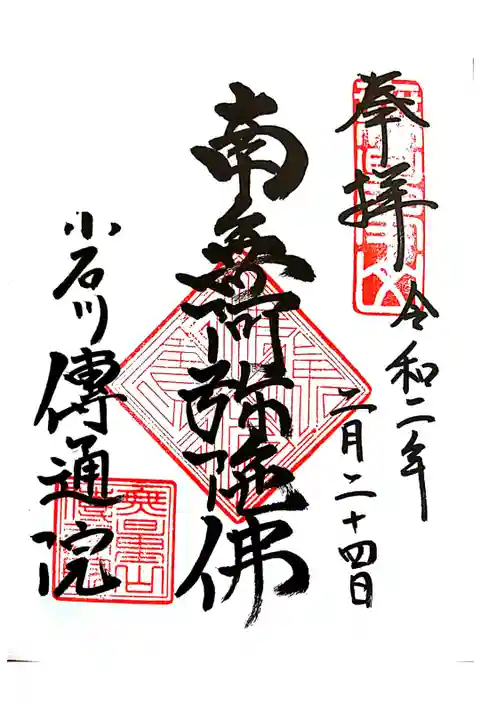 奉拝
令和二年
二月二十四日
南無阿弥陀佛
小石川
傳通院
無量山